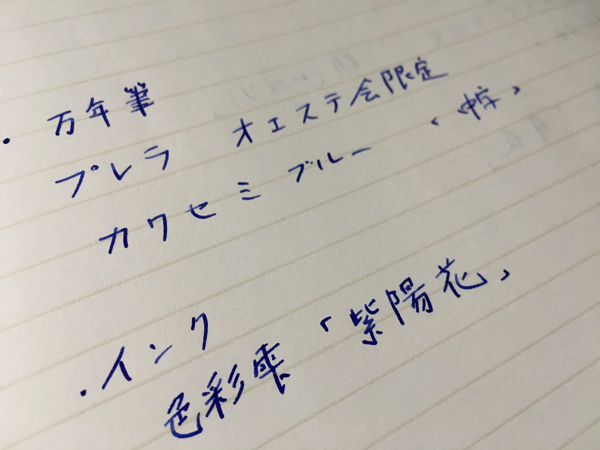 ・万年筆
プレラ オエステ会限定
カワセミブルー 「中字」
・インク
色彩雫「紫陽花」